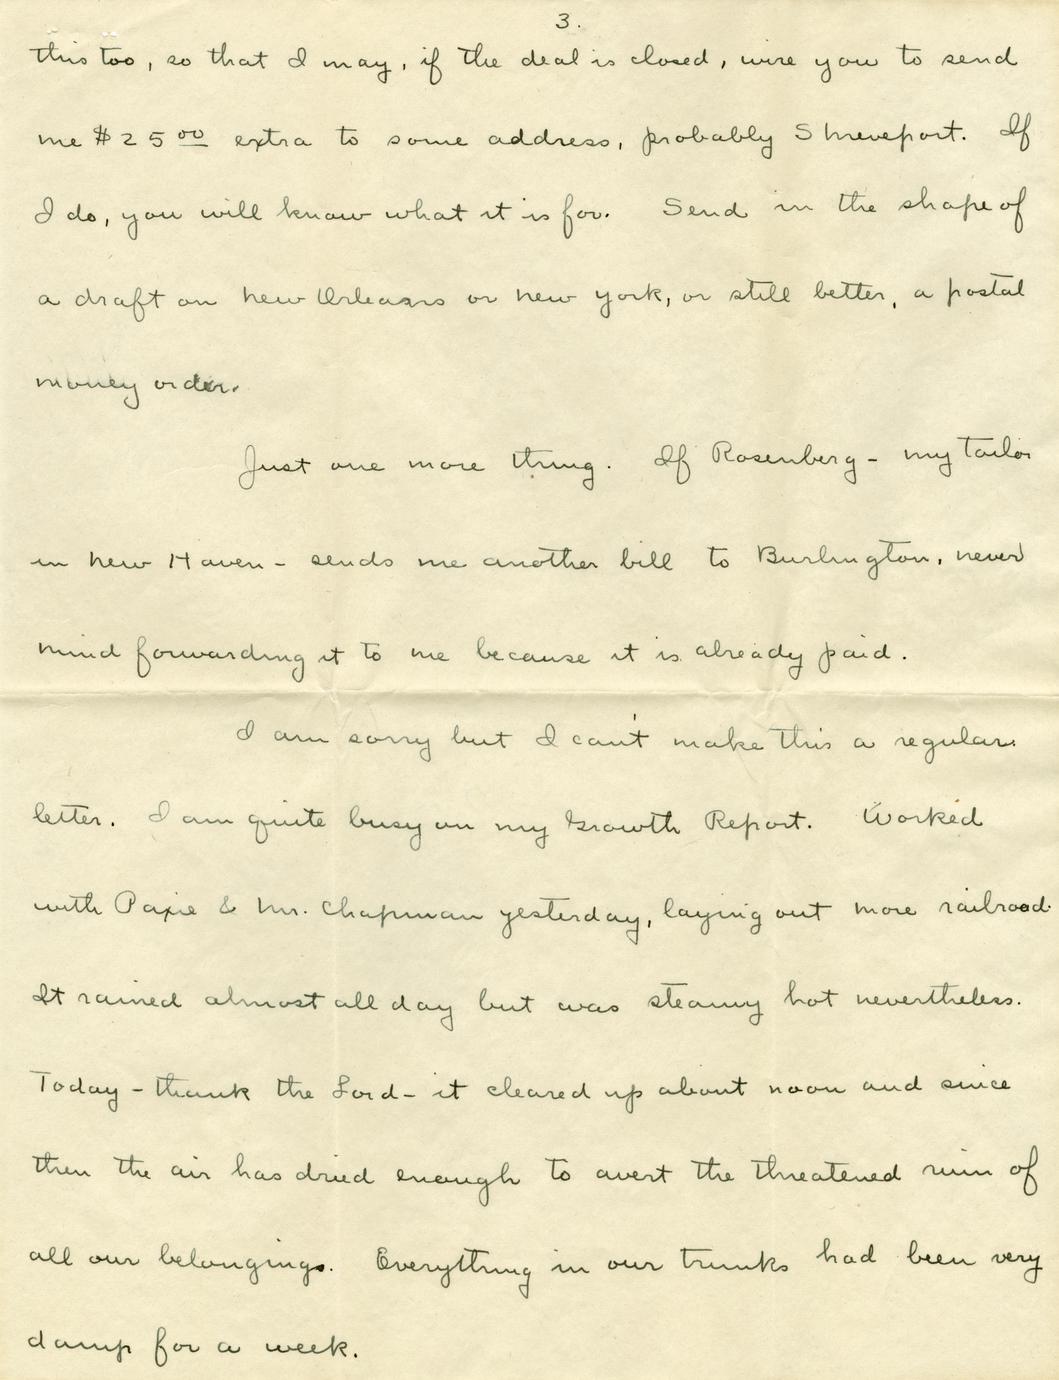 3.
this too, so that I may, if the deal is closed, wire you to send
me $25 00 extra to some address, probably Shreveport. If
I do, you will know what it is for. Send in the shape of
a draft on New Orleans or New York, or still better, a postal
money order.
Just one more thing. If Rosenberg - my tailor
in New Haven - sends me another bill to Burlington, never
mind forwarding it to me because it is already paid.
I am sorry but I can't make this a regular
letter. I am quite busy on my Growth Report. Worked
with Paxie & Mr. Chapman yesterday, laying out more railroad.
It rained almost all day but was steamy hot nevertheless.
Today - thank the Lord - it cleared up about noon and since
then the air has dried enough to avert the threatened ruin of
all our belongings. Everything in our trunks had been very
damp for a week.